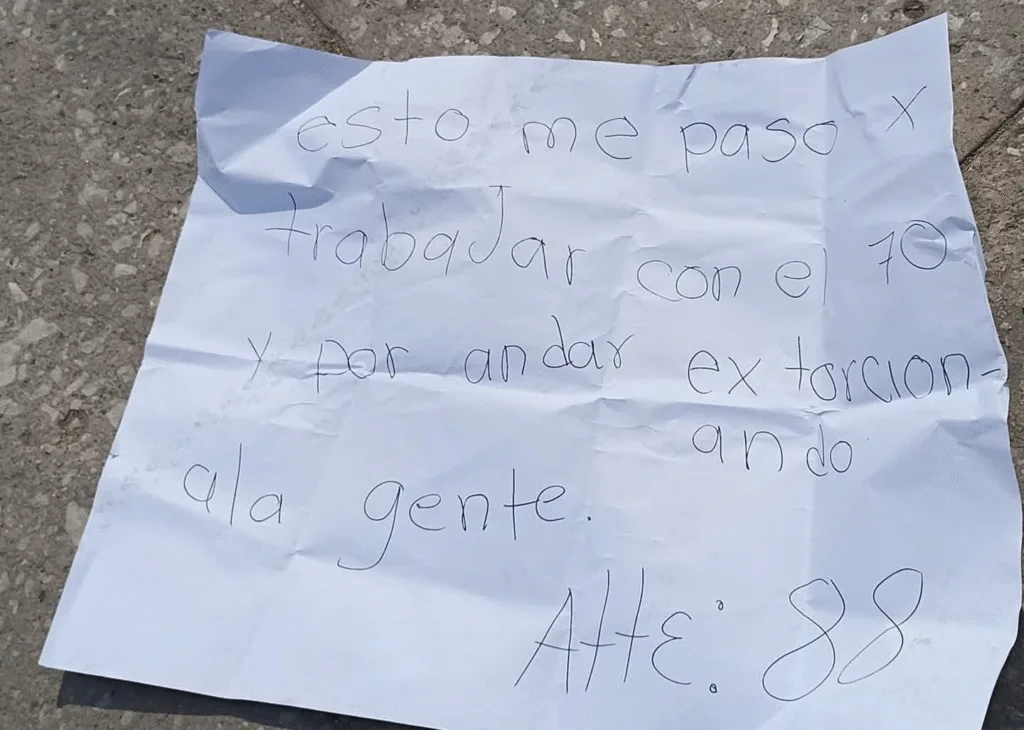 esto me paso x
trabaJar con el 70
y por andar extorcion-
ando
ala gente.
Atte: 88